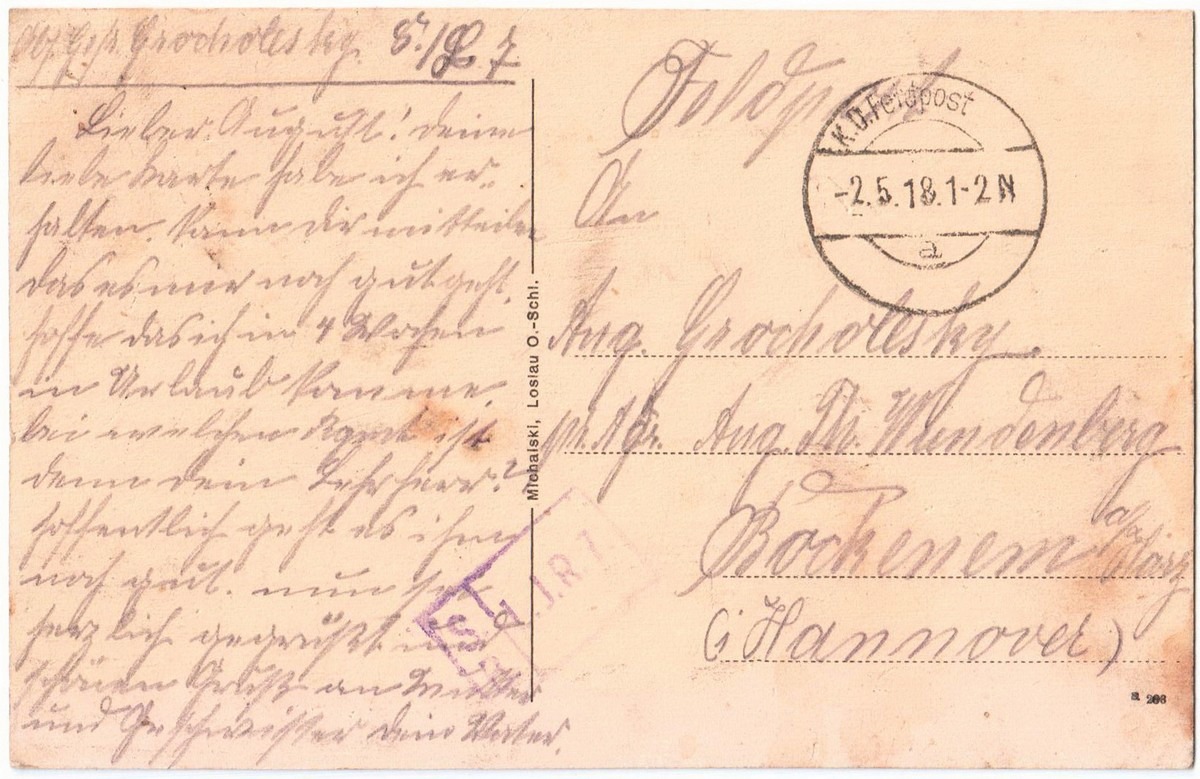 Abs. Gefr. Grocholesky. 5./L. 7
Lieber August! deine
liebe Karte habe ich er-
halten. Kann dir mitteilen
das es mir noch gut geht,
hoffe das ich in 4 Wochen
in Urlaub komme.
bei welchen ist
denn dein Lehrherr?
hoffentlich geht es ihm
noch gut. nun sei
herzlich gegrüßt und
schönen Gruß an Mutter
und Geschwister dein Vater.
Michalski, Loslau O.-Schl.
Feldpost
K.D.Feldpost
-2.5.18.1-2N
a
An
Aug. Grocholesky.
pr. Adr. Aug. Wundenberg
Bockenem a/Harz
(i Hannover)
J.R 7
a 266